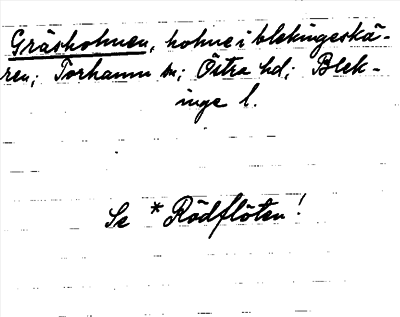 Gräsholmen, holme i blekingeskä-
ren; Torhamn sn; Östra hd; Blek-
inge l.
Se *Rödflöten!